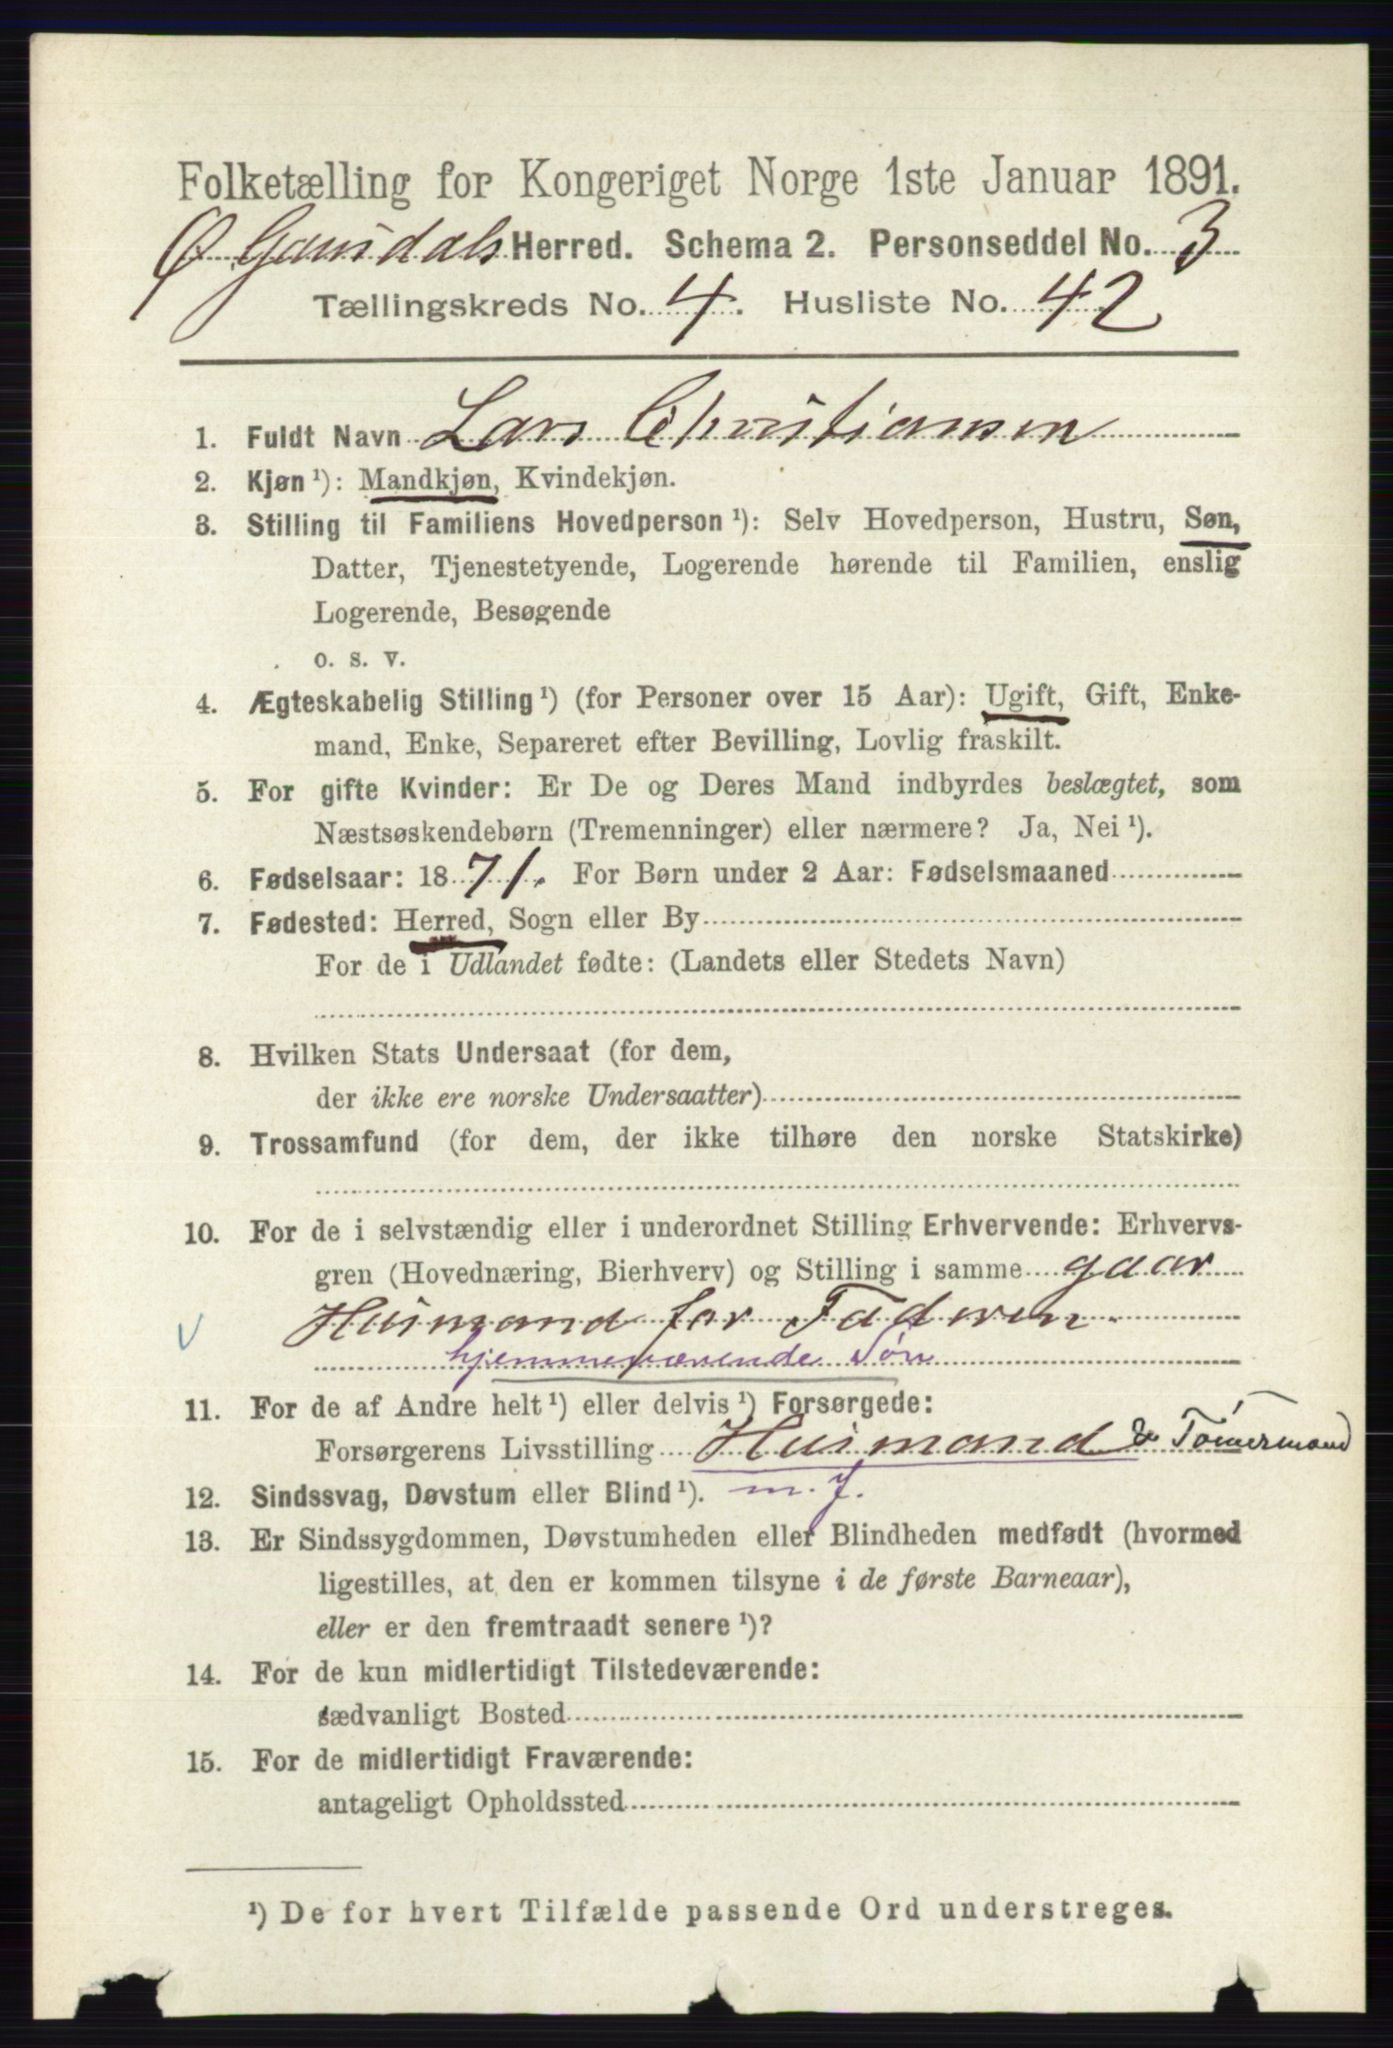 Folketælling for Kongeriget Norge 1ste Januar 1891.
Ø. Gausdals Herred. Schema 2. Personseddel No. 3
Tællingskreds No. 4. Husliste No. 42
1. Fuldt Navn Lars Christiansen
2. Kjøn ¹): Mandkjøn, Kvindekjøn.
3. Stilling til Familiens Hovedperson ¹): Selv Hovedperson, Hustru, Søn,
Datter, Tjenestetyende, Logerende hørende til Familien, enslig
Logerende, Besøgende
o. s. v.
4. Ægteskabelig Stilling ¹) (for Personer over 15 Aar): Ugift, Gift, Enke-
mand, Enke, Separeret efter Bevilling, Lovlig fraskilt.
5. For gifte Kvinder: Er De og Deres Mand indbyrdes beslægtet, som
Næstsøskendebørn (Tremenninger) eller nærmere? Ja, Nei ¹).
6. Fødselsaar: 1871. For Børn under 2 Aar: Fødselsmaaned
7. Fødested: Herred, Sogn eller By
For de i Udlandet fødte: (Landets eller Stedets Navn)
8. Hvilken Stats Undersaat (for dem,
der ikke ere norske Undersaatter)
9. Trossamfund (for dem, der ikke tilhøre den norske Statskirke)
10. For de i selvstændig eller i underordnet Stilling Erhvervende: Erhvervs-
gren (Hovednæring, Bierhverv) og Stilling i samme gaar
Husmand for Faderen
hjemmeværende Søn
11. For de af Andre helt ¹) eller delvis ¹) Forsørgede:
Forsørgerens Livsstilling Husmand & Tømmermand
12. Sindssvag, Døvstum eller Blind ¹). m. J.
13. Er Sindssygdommen, Døvstumheden eller Blindheden medfødt (hvormed
ligestilles, at den er kommen tilsyne i de første Barneaar),
eller er den fremtraadt senere ¹)?
14. For de kun midlertidigt Tilstedeværende:
sædvanligt Bosted
15. For de midlertidigt Fraværende:
antageligt Opholdssted
¹) De for hvert Tilfælde passende Ord understreges.